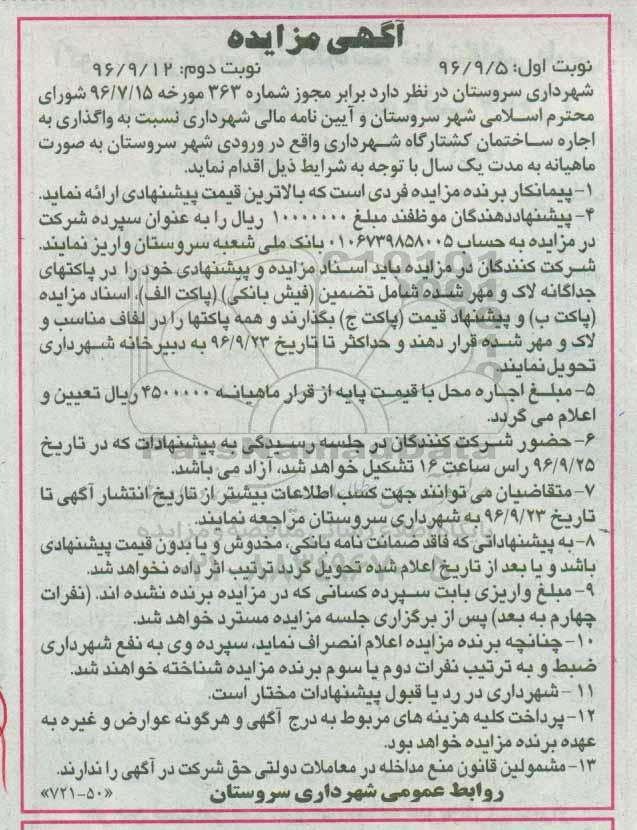 آگهی مزایده
نوبت اول: ۹۶/۹/۵ نوبت دوم: ۹۶/۹/۱۲
شهرداری سروستان در نظر دارد برابر مجوز شماره ۳۶۳ مورخه ۹۶/۷/۱۵ شورای
محترم اسلامی شهر سروستان و آیین نامه مالی شهرداری نسبت به واگذاری به
اجاره ساختمان کشتارگاه شهرداری واقع در ورودی شهر سروستان به صورت
ماهیانه به مدت یک سال با توجه به شرایط ذیل اقدام نماید.
۱- پیمانکار برنده مزایده فردی است که بالاترین قیمت پیشنهادی ارائه نماید.
۴- پیشنهاددهندگان موظفند مبلغ ۱۰۰۰۰۰۰۰ ریال را به عنوان سپرده شرکت
در مزایده به حساب ۰۱۰۶۷۳۹۸۵۸۰۰۵ بانک ملی شعبه سروستان واریز نمایند.
شرکت کنندگان در مزایده باید اسناد مزایده و پیشنهادی خود را در پاکتهای
جداگانه لاک و مهر شده شامل تضمین (فیش بانکی) (پاکت الف)، اسناد مزایده
(پاکت ب) و پیشنهاد قیمت (پاکت ج) بگذارند و همه پاکتها را در لفاف مناسب و
لاک و مهر شده قرار دهند و حداکثر تا تاریخ ۹۶/۹/۲۳ به دبیرخانه شهرداری
تحویل نمایند.
۵- مبلغ اجاره محل با قیمت پایه از قرار ماهیانه ۴۵۰۰۰۰۰ ریال تعیین و
اعلام می گردد.
۶- حضور شرکت کنندگان در جلسه رسیدگی به پیشنهادات که در تاریخ
۹۶/۹/۲۵ راس ساعت ۱۶ تشکیل خواهد شد، آزاد می باشد.
۷- متقاضیان می توانند جهت کسب اطلاعات بیشتر از تاریخ انتشار آگهی تا
تاریخ ۹۶/۹/۲۳ به شهرداری سروستان مراجعه نمایند.
۸- به پیشنهاداتی که فاقد ضمانت نامه بانکی، مخدوش و یا بدون قیمت پیشنهادی
باشد و یا بعد از تاریخ اعلام شده تحویل گردد ترتیب اثر داده نخواهد شد.
۹- مبلغ واریزی بابت سپرده کسانی که در مزایده برنده نشده اند. (نفرات
چهارم به بعد) پس از برگزاری جلسه مزایده مسترد خواهد شد.
۱۰- چنانچه برنده مزایده اعلام انصراف نماید، سپرده وی به نفع شهرداری
ضبط و به ترتیب نفرات دوم یا سوم برنده مزایده شناخته خواهند شد.
۱۱ - شهرداری در رد یا قبول پیشنهادات مختار است.
۱۲- پرداخت کلیه هزینه های مربوط به درج آگهی و هرگونه عوارض و غیره به
عهده برنده مزایده خواهد بود.
۱۳- مشمولین قانون منع مداخله در معاملات دولتی حق شرکت در آگهی را ندارند.
روابط عمومی شهرداری سروستان «۷۲۱-۵۰»
ParsNamadData